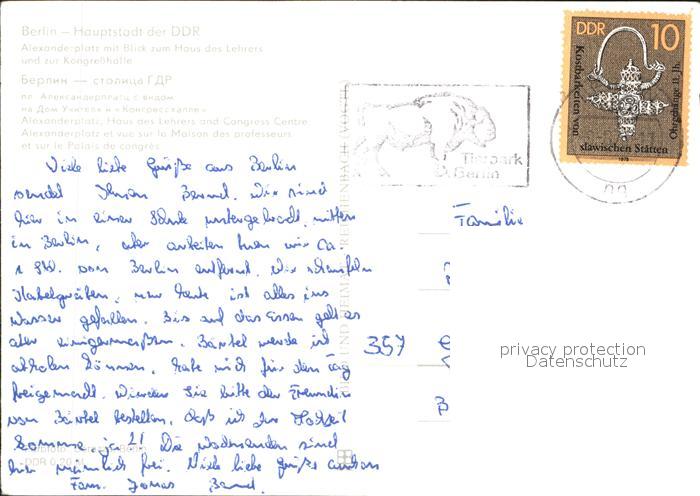 Berlin – Hauptstadt der DDR
Alexanderplatz mit Blick zum Haus des Lehrers
und zur Kongreßhalle
Берлин — столица ГДР
пл. Александерплатц с видом
на Дом Учителя и «Конгрессхалле»
Alexanderplatz, Haus des Lehrers and Congress Centre
Alexanderplatz et vue sur la Maison des professeurs
et sur le Palais de congrès
Viele liebe Grüße aus Berlin
sendet Ihnen Bernd. Wir sind
hier in einer Schule untergebracht, mitten
in Berlin, aber arbeiten tuen wir ca.
1 Std. von Berlin entfernt. Wir schaufeln
Kabelgräben, nur heute ist alles ins
Wasser gefallen. Bis auf das Essen geht es
aber einigermaßen. Bärbel werde ich
abholen können, habe mich für den Tag
freigemacht. Würden Sie bitte den Freundin
von Bärbel bestellen, daß ich zur Hochzeit
komme, ja!! Die Wochenenden sind
hier nämlich frei. Viele liebe Grüße an
Fam. Jonas Bernd.
DDR 0,20 M
Familie
357
B
DDR 10
Kostbarkeiten von
slawischen Stätten
Ohrgehänge 11. Jh.
1978
Tierpark
Berlin
privacy protection
Datenschutz